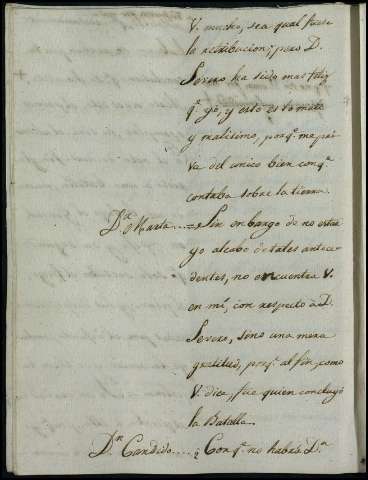 V. mucho, sea qual fuese
la retribucion; pero D.
Severo ha sido mas feliz
q.e yó, y esto es lo malo
y malisimo, porq.e me pri
va del unico bien con q.e
contaba sobre la tierra.
D.a Marta....= Sin embargo de no estar
yo alcabo de tales antece
dentes, no encuentra V.
en mí, con respecto a D.
Severo, sino una mera
gratitud, porq.e al fin, como
V. dice, fue quien concluyó
la Batalla.
D.n Candido....¿ Conq.e no habrá D.a